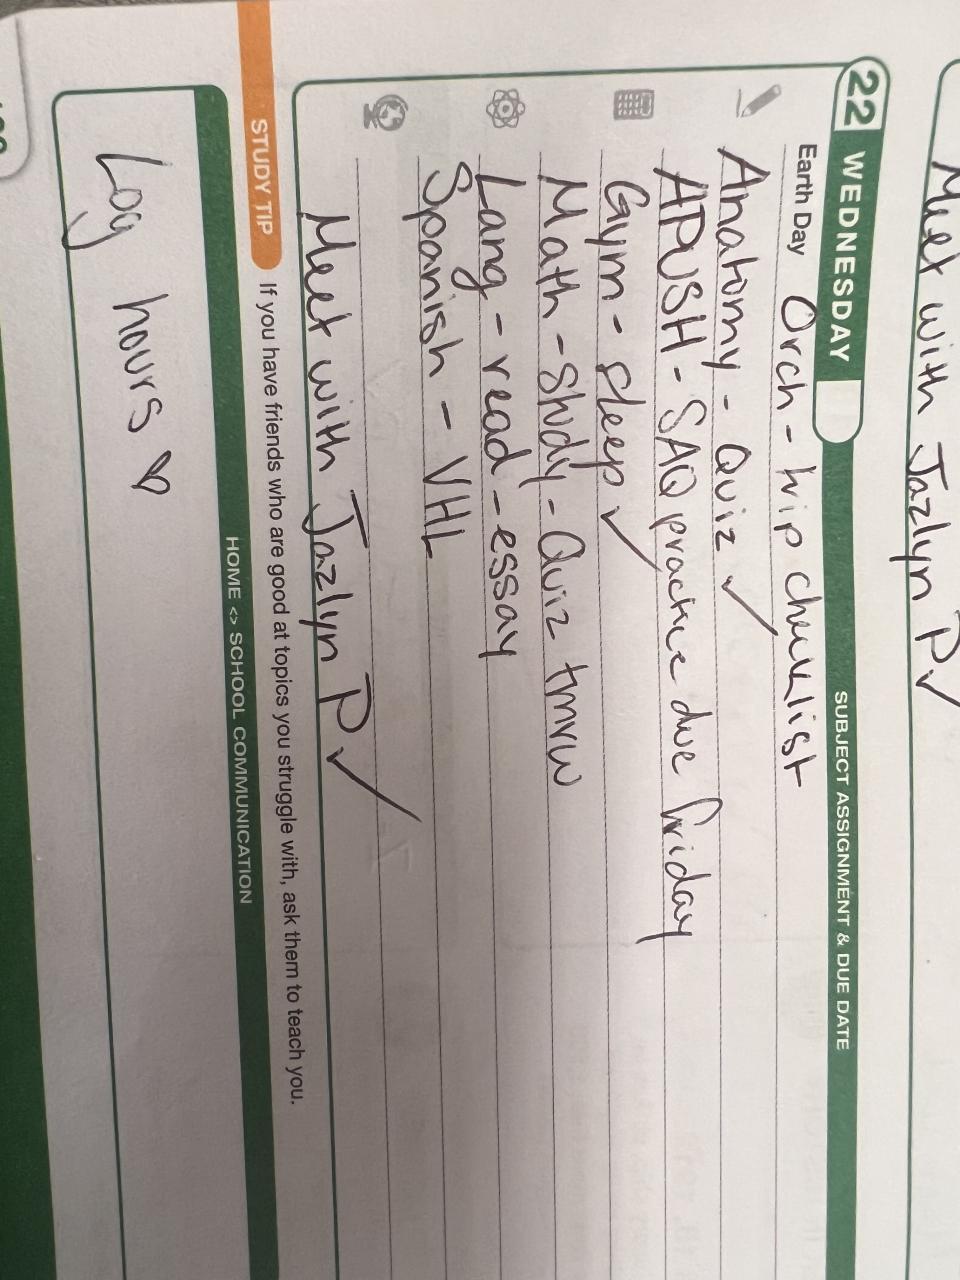 Meet with Jazlyn P✓
22 WEDNESDAY SUBJECT ASSIGNMENT & DUE DATE
Earth Day Orch - trip checklist
Anatomy - Quiz ✓
APUSH - SAQ practice due friday
Gym - sleep ✓
Math - Study - Quiz tmrw
Lang - read - essay
Spanish - VHL
Meet with Jazlyn P ✓
STUDY TIP If you have friends who are good at topics you struggle with, ask them to teach you.
HOME <> SCHOOL COMMUNICATION
Log hours ♡